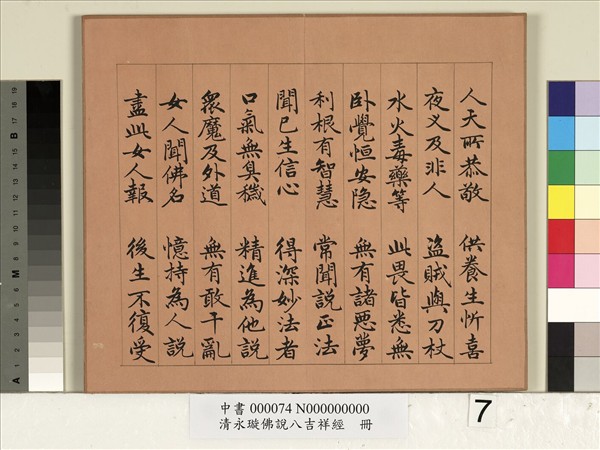 人天所恭敬 供養生忻喜
夜叉及非人 盜賊與刀杖
水火毒藥等 此畏皆悉無
卧覺恒安隐 無有諸惡夢
利根有智慧 常聞說正法
聞已生信心 得深妙法者
口氣無臭穢 精進為他說
衆魔及外道 無有敢干亂
女人聞佛名 憶持為人說
盡此女人報 後生不復受
中書 000074 N000000000
清永璇佛說八吉祥經 冊
7
A 1 2 3 4 5 6 M 8 9 10 11 12 13 14 15 B 17 18 19